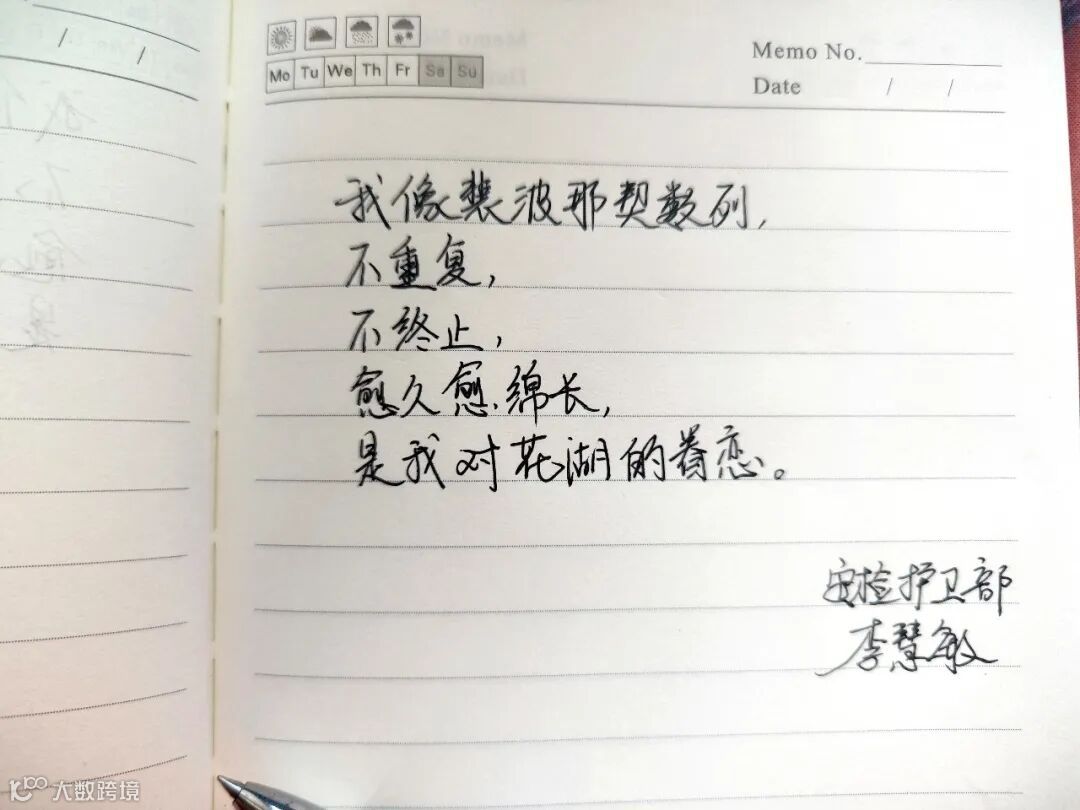 Mo Tu We Th Fr Sa Su
Memo No.
Date / /
我像裴波那契数列,
不重复,
不终止,
愈久愈绵长,
是我对花湖的眷恋。
安检护卫部
李慧敏
大数跨境